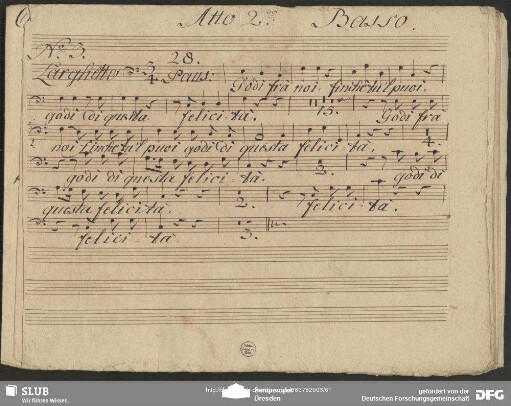 Atto 2do Basso.
No. 3.
Larghetto 3/4 28. Paus:
Godi frà noi finche tu'l puoi.
godi di questa felici-tà. 15. Godi frà
noi finche tu'l puoi godi di questa felici-tà. 4.
godi di questa felici-tà. 3. godi di
questa felicità. 2. felici-tà.
felici-tà 3.
SLUB
Wir führen Wissen.
Dresden
gefördert von der
Deutschen Forschungsgemeinschaft
DFG